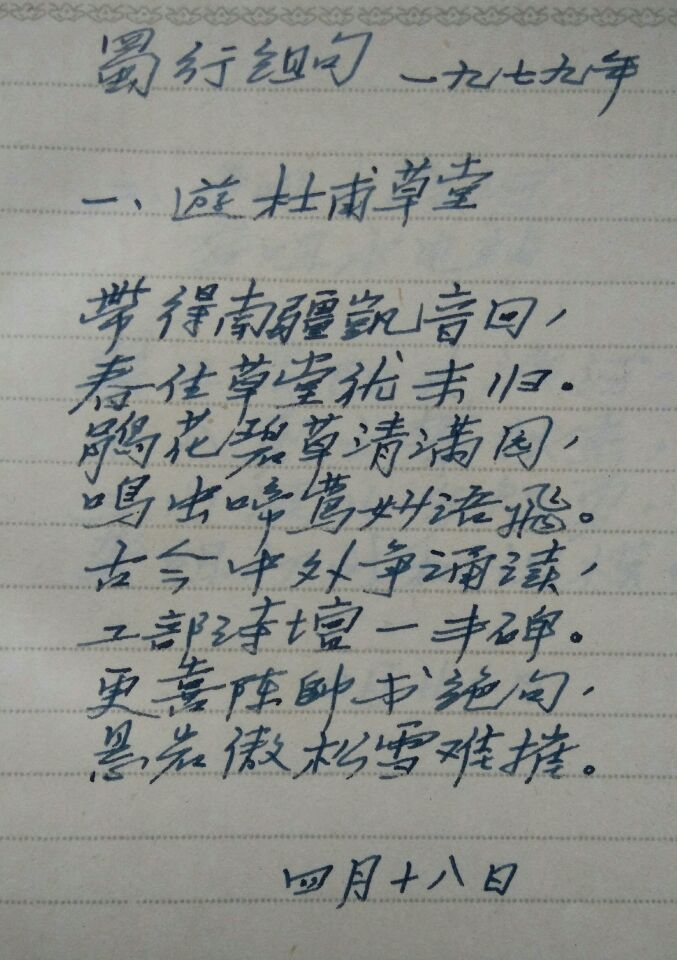 蜀行组句 一九七九年
一、遊杜甫草堂
带得南疆凱音回，
春住草堂犹未归。
鹃花碧草清满园，
鳴虫啼鶯妙语飛。
古今中外争诵读，
工部诗坛一丰碑。
更喜陈帥书絶句，
悬岩傲松雪难摧。
四月十八日